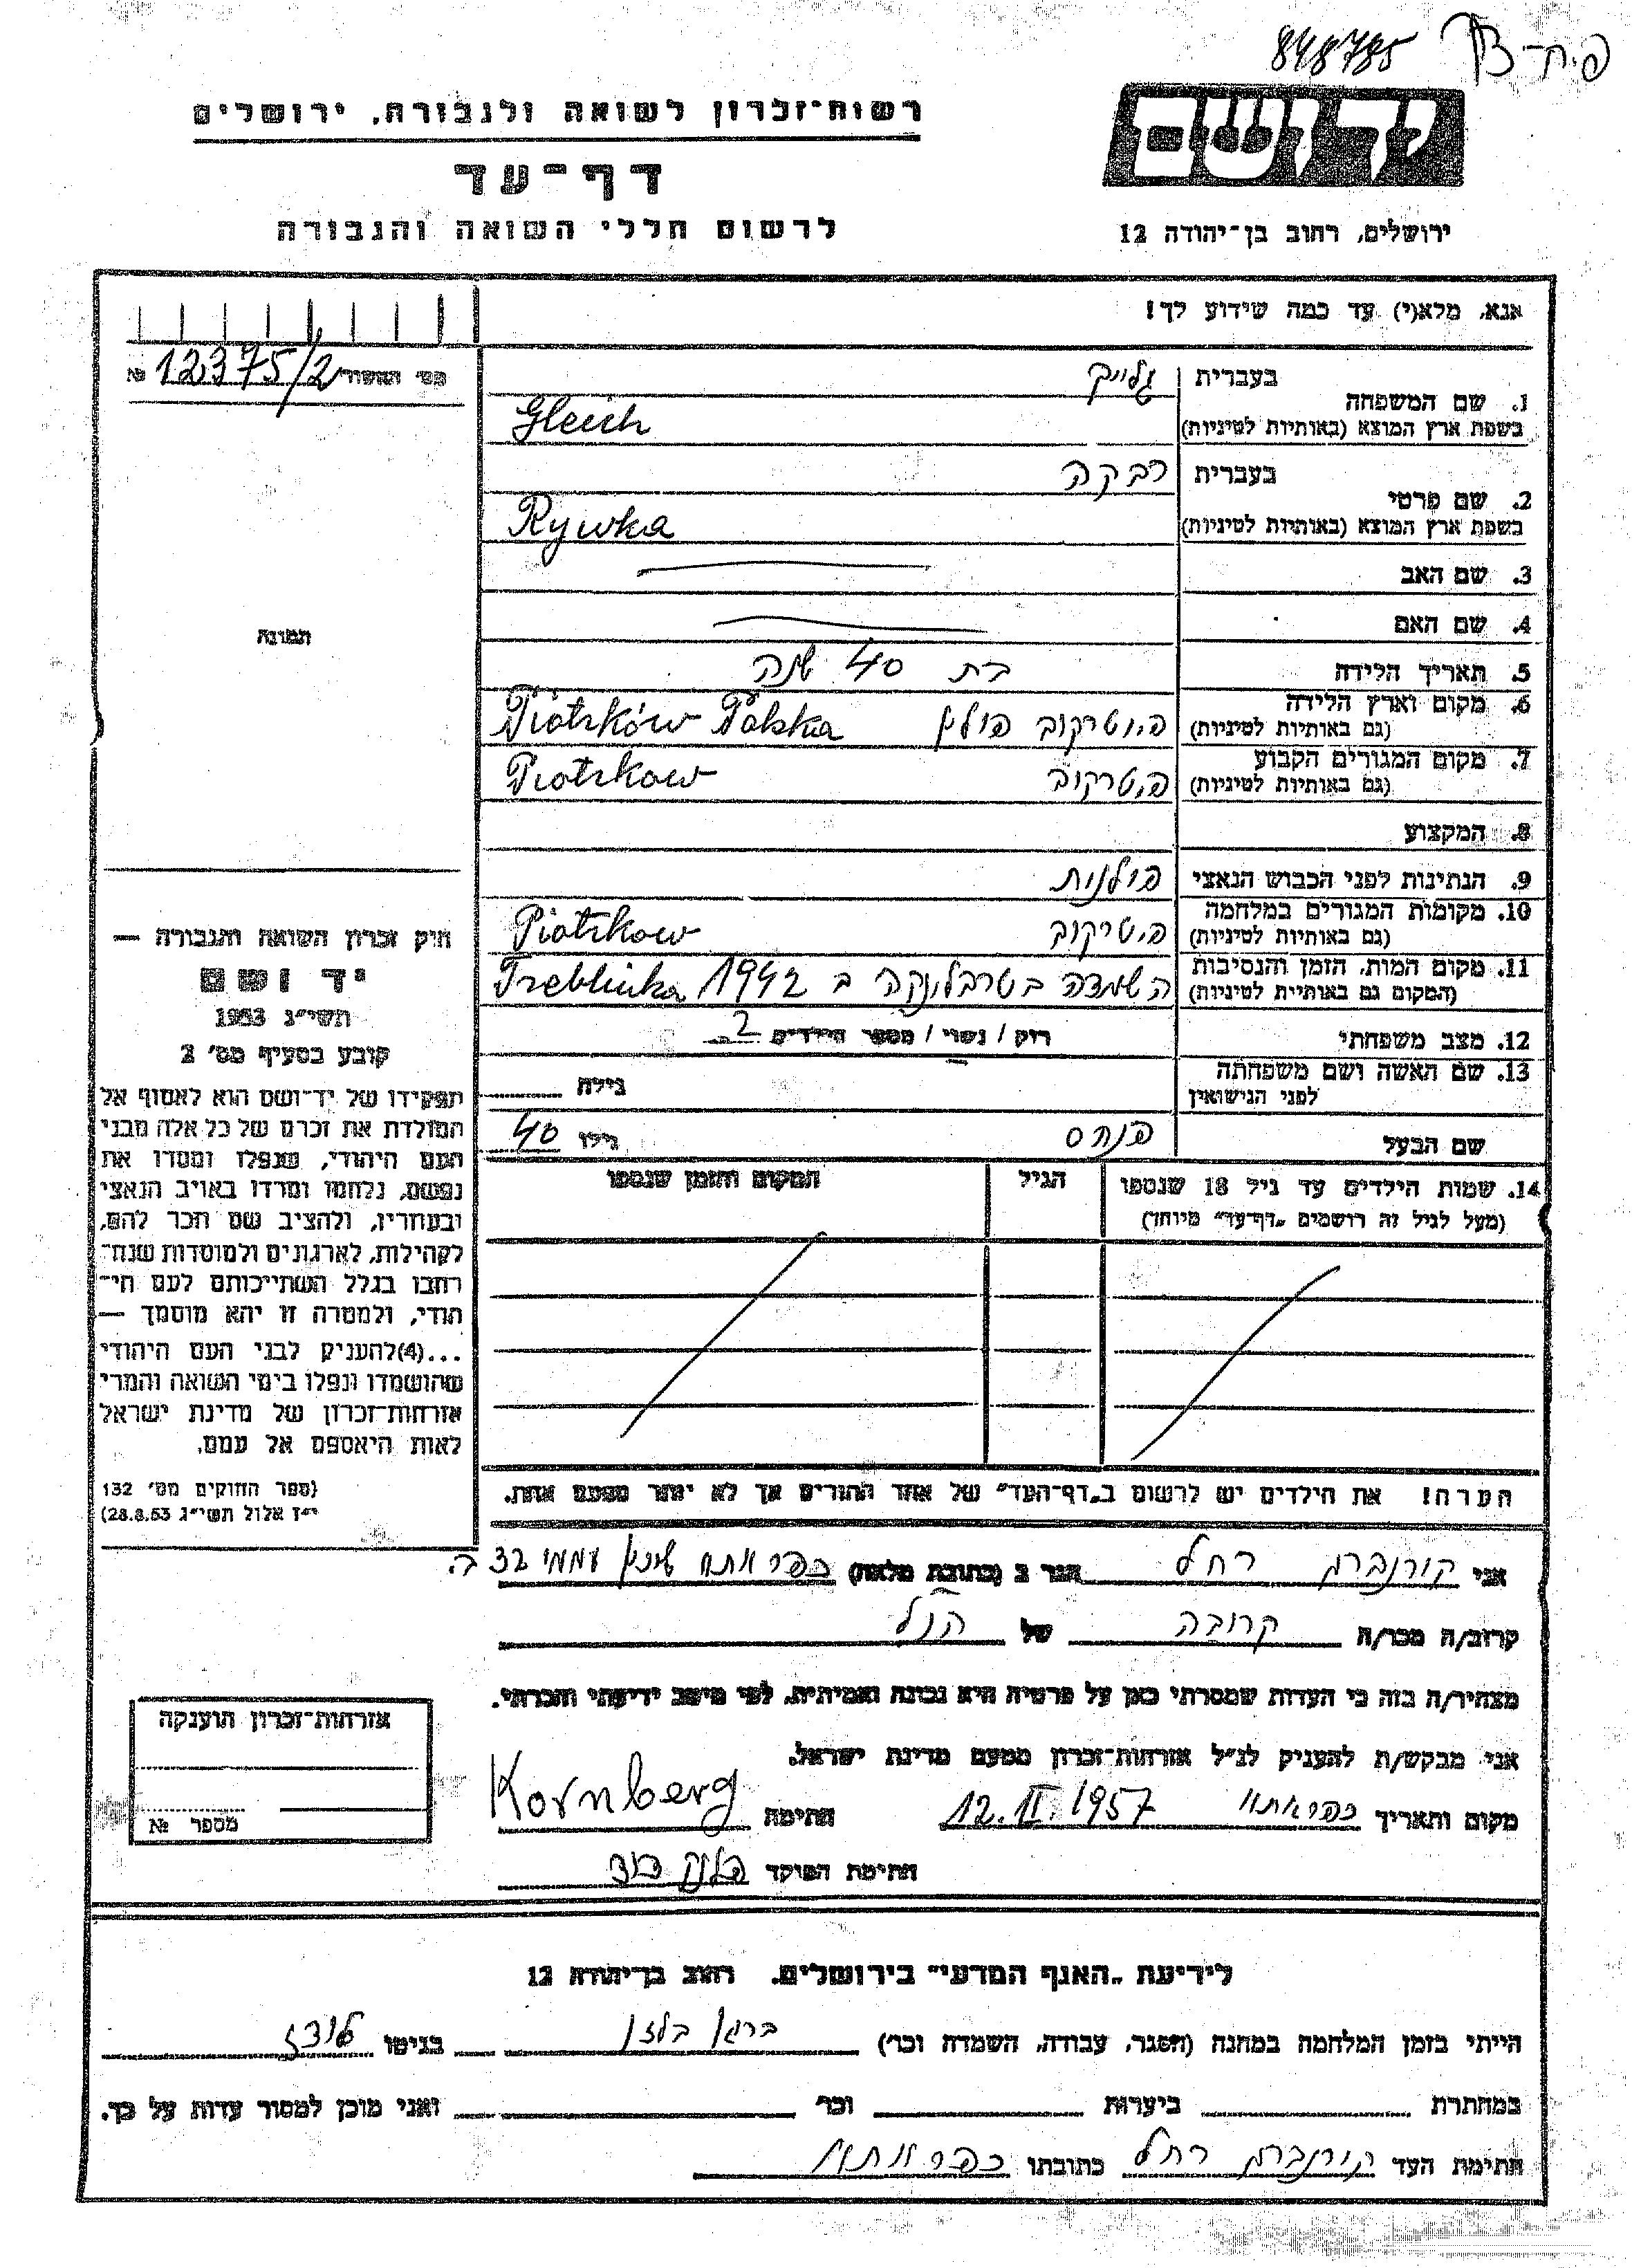 848785 פ.ח-
יד ושם
רשות־זכרון לשואה ולגבורה, ירושלים
דף־עד
לרשום חללי השואה והגבורה
ירושלים, רחוב בן־יהודה 12
אנא, מלא(י) עד כמה שידוע לך!
מס׳ המשור № 12375/2
1. שם המשפחה בעברית גלייך
בשפת ארץ המוצא (באותיות לטיניות) Gleich
2. שם פרטי בעברית רבקה
בשפת ארץ המוצא (באותיות לטיניות) Rywka
3. שם האב
4. שם האם
תמונה
5. תאריך הלידה בת 40 שנה
6. מקום וארץ הלידה (גם באותיות לטיניות) פיוטרקוב פולין Piotrków Polska
7. מקום המגורים הקבוע (גם באותיות לטיניות) פיטרקוב Piotrkow
8. המקצוע
9. הנתינות לפני הכבוש הנאצי פולנית
10. מקומות המגורים במלחמה (גם באותיות לטיניות) פיטרקוב Piotrkow
11. מקום המות, הזמן והנסיבות (המקום גם באותיות לטיניות) השמדה בטרבלינקה ב 1942 Treblinka
12. מצב משפחתי רוק / נשוי / מספר הילדים 2
13. שם האשה ושם משפחתה לפני הנישואין גילה
שם הבעל פנחס גילו 40
14. שמות הילדים עד גיל 18 שנספו הגיל המקום והזמן שנספו
(מעל לגיל זה רושמים „דף־עד״ מיוחד)
הערה! את הילדים יש לרשום ב„דף־העד״ של אחד ההורים אך לא יותר מפעם אחת.
חוק זכרון השואה והגבורה —
יד ושם
תשי״ג 1953
קובע בסעיף מס׳ 2
תפקידו של יד־ושם הוא לאסוף אל
המולדת את זכרם של כל אלה מבני
העם היהודי, שנפלו ומסרו את
נפשם, נלחמו ומרדו באויב הנאצי
ובעוזריו, ולהציב שם וזכר להם,
לקהילות, לארגונים ולמוסדות שנח־
רבו בגלל השתייכותם לעם הי־
הודי, ולמטרה זו יהא מוסמך —
...(4)להעניק לבני העם היהודי
שהושמדו ונפלו בימי השואה והמרי
אזרחות־זכרון של מדינת ישראל
לאות היאספם אל עמם.
(ספר החוקים מס׳ 132
י״ז אלול תשי״ג 28.8.53)
אני קורנברג רחל הגר ב (כתובת מלאה) כפר אתא שיכון עממי 32 ב.
קרוב/ה מכר/ה קרובה של הנ״ל
מצהיר/ה בזה כי העדות שמסרתי כאן על פרטיה היא נכונה ואמיתית, לפי מיטב ידיעתי והכרתי.
אני מבקש/ת להעניק לנ״ל אזרחות־זכרון מטעם מדינת ישראל.
מקום ותאריך כפר אתא 12.II.1957 חתימה Kornberg
חתימת הפוקד
אזרחות־זכרון הוענקה
מספר №
לידיעת „האגף המדעי״ בירושלים. רחוב בן־יהודה 12
הייתי בזמן המלחמה במחנה (הסגר, עבודה, השמדה וכר׳) ברגן בלזן בגיטו לודז
במחתרת ביערות וכר ואני מוכן למסור עדות על כך.
חתימת העד קורנברג רחל כתובתו כפר אתא